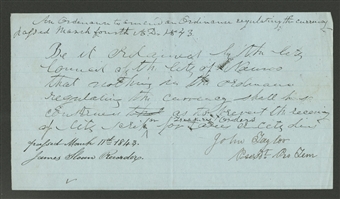 An Ordinance to amend an Ordinance regulating the currency
passed March fourth A.D. 1843.
Be it Ordained by the City
Council of the City of Nauvoo
that nothing in the ordinance
regulating the currency shall be so
construed as to prevent the
of City Scrip for City
passed March 11th 1843.
John Taylor
James Sloan Recorder
Presdt. Pro Tem